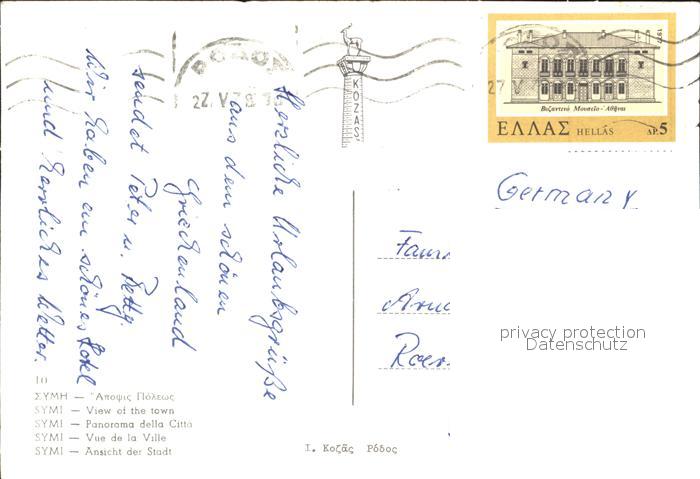 Herzliche Urlaubsgrüße
aus dem schönen
Griechenland
sendet Peter u. Betty.
Wir haben ein schönes Hotel
und herrliches Wetter.
10
ΣΥΜΗ — Ἄποψις Πόλεως
SYMI — View of the town
SYMI — Panorama della Città
SYMI — Vue de la Ville
SYMI — Ansicht der Stadt
Ι. Κοζᾶς Ρόδος
KOZAS
27 V 78
1977
Βυζαντινό Μουσείο - Ἀθῆναι
ΕΛΛΑΣ HELLAS ΔΡ. 5
Germany
privacy protection
Datenschutz